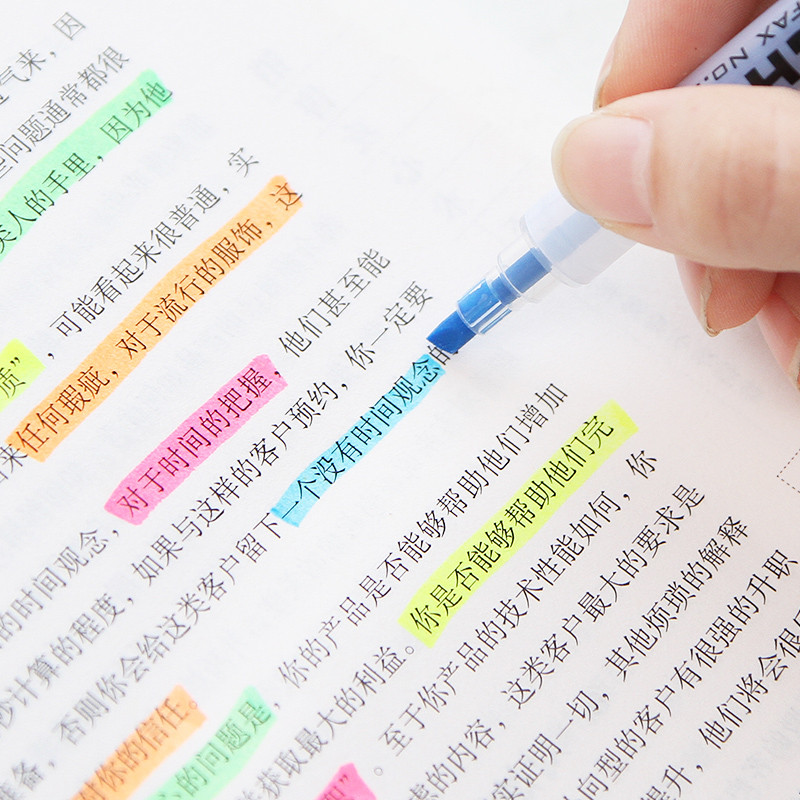 气来，因
些问题通常都很
类人的手里，因为他
质”，可能看起来很普通，实
来任何瑕疵，对于流行的服饰，这
的时间观念，对于时间的把握，他们甚至能
秒计算的程度，如果与这样的客户预约，你一定要
准备，否则你会给这类客户留下一个没有时间观念的
对你的信任。
的问题是，你的产品是否能够帮助他们增加
获取最大的利益。你是否能够帮助他们完
”。至于你产品的技术性能如何，你
虑的内容，这类客户最大的要求是
实证明一切，其他烦琐的解释
向型的客户有很强的升职
提升，他们将会很
FAX NO.